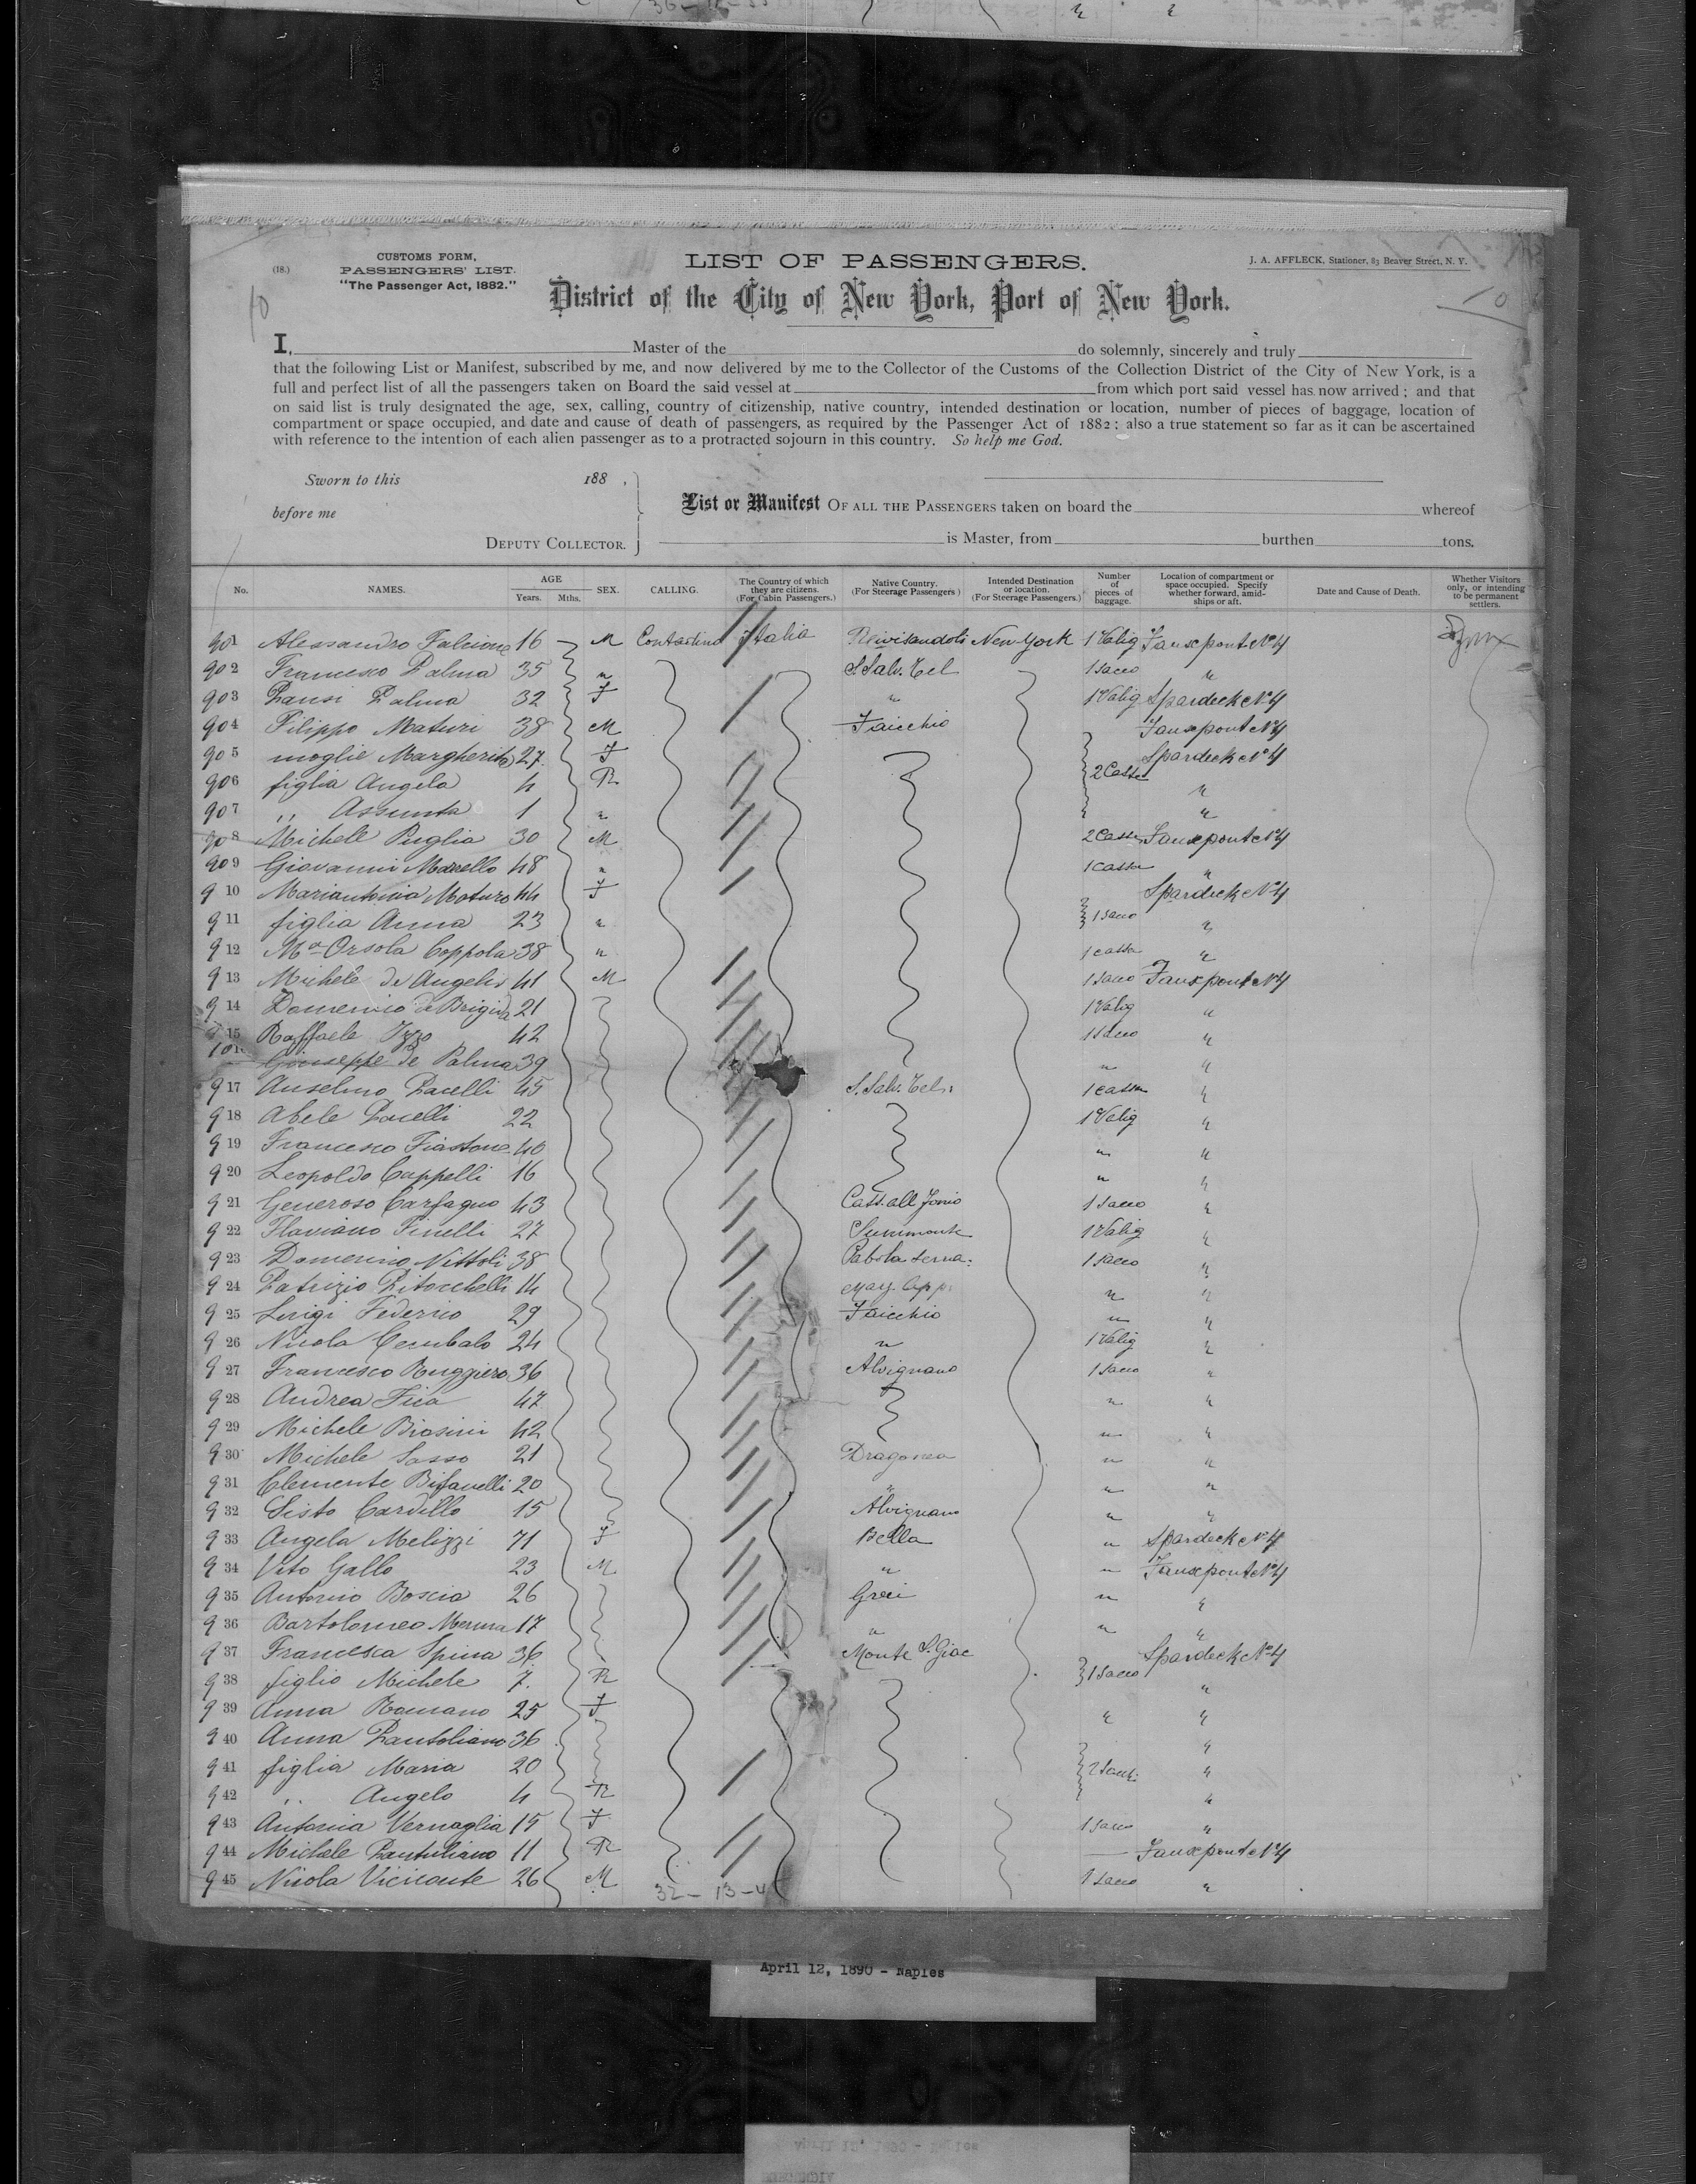 (18.)
CUSTOMS FORM,
PASSENGERS' LIST.
"The Passenger Act, 1882."
LIST OF PASSENGERS.
J. A. AFFLECK, Stationer, 83 Beaver Street, N. Y.
District of the City of New York, Port of New York.
10
10
I, Master of the do solemnly, sincerely and truly
that the following List or Manifest, subscribed by me, and now delivered by me to the Collector of the Customs of the Collection District of the City of New York, is a
full and perfect list of all the passengers taken on Board the said vessel at from which port said vessel has now arrived; and that
on said list is truly designated the age, sex, calling, country of citizenship, native country, intended destination or location, number of pieces of baggage, location of
compartment or space occupied, and date and cause of death of passengers, as required by the Passenger Act of 1882; also a true statement so far as it can be ascertained
with reference to the intention of each alien passenger as to a protracted sojourn in this country. So help me God.
Sworn to this 188 ,
before me
DEPUTY COLLECTOR.
List or Manifest OF ALL THE PASSENGERS taken on board the whereof
is Master, from burthen tons.
No. NAMES. AGE Years. Mths. SEX. CALLING. The Country of which they are citizens. (For Cabin Passengers.) Native Country. (For Steerage Passengers.) Intended Destination or location. (For Steerage Passengers.) Number of pieces of baggage. Location of compartment or space occupied. Specify whether forward, amidships or aft. Date and Cause of Death. Whether Visitors only, or intending to be permanent settlers.
901 Alessandro Falcione 16 M Contadino Italia New York 1 Valig Fauxpont No 4
902 Francesco Palma 35 " S. Salv. Tel 1 sacco "
903 Palma 32 F " 1 Valig Spardeck No 4
904 Filippo Maturi 38 M Faicchio Fauxpont No 4
905 moglie Margherita 27 F Spardeck No 4
906 figlia Angela 4 R 2 Casse "
907 " Assunta 1 " "
908 Michele Puglia 30 M 2 Casse Fauxpont No 4
909 Giovanni 48 " 1 cassa "
910 Mariantonia Maturo 44 F Spardeck No 4
911 figlia Anna 23 " 1 sacco "
912 Ma Orsola Coppola 38 " 1 cassa "
913 Michele de Angelis 41 M 1 sacco Fauxpont No 4
914 Domenico de Brigida 21 1 Valig "
15 Raffaele Izzo 42 1 sacco "
Giuseppe de Palma 39 " "
917 Anselmo Pacelli 45 S. Salv. Tel. 1 cassa "
918 Abele Pacelli 22 1 Valig "
919 Francesco 40 " "
920 Leopoldo Cappelli 16 " "
921 Generoso Carfagno 43 Cast. all Jonio 1 sacco "
922 Flaviano Finelli 27 Summonte 1 Valig "
923 Domenico Nittoli 38 1 sacco "
924 Patrizio Pitocchelli 14 " "
925 Luigi Federico 29 Faicchio " "
926 Nicola Cembalo 24 " 1 Valig "
927 Francesco Ruggiero 36 Alvignano 1 sacco "
928 Andrea 47 " "
929 Michele Biasini 42 " "
930 Michele Sasso 21 Dragonea " "
931 Clemente Bifanelli 20 " " "
932 Sisto Cardillo 15 Alvignano " "
933 Angela Melizzi 71 F Bella " Spardeck No 4
934 Vito Gallo 23 M " " Fauxpont No 4
935 Antonio Boscia 26 Greci " "
936 Bartolomeo 17 " " "
937 Francesca Spina 36 Monte S. Giac Spardeck No 4
938 figlio Michele 7. R 1 sacco "
939 Anna Romano 25 F " "
940 Anna Pantoliano 36 "
941 figlia Maria 20 2 sacchi "
942 " Angelo 4 R "
943 Antonia Vernaglia 15 F 1 sacco "
944 Michele Pantuliano 11 R — Fauxpont No 4
945 Nicola Vicicante 26 M 1 sacco "
32 - 13 - 4
April 12, 1890 - Naples